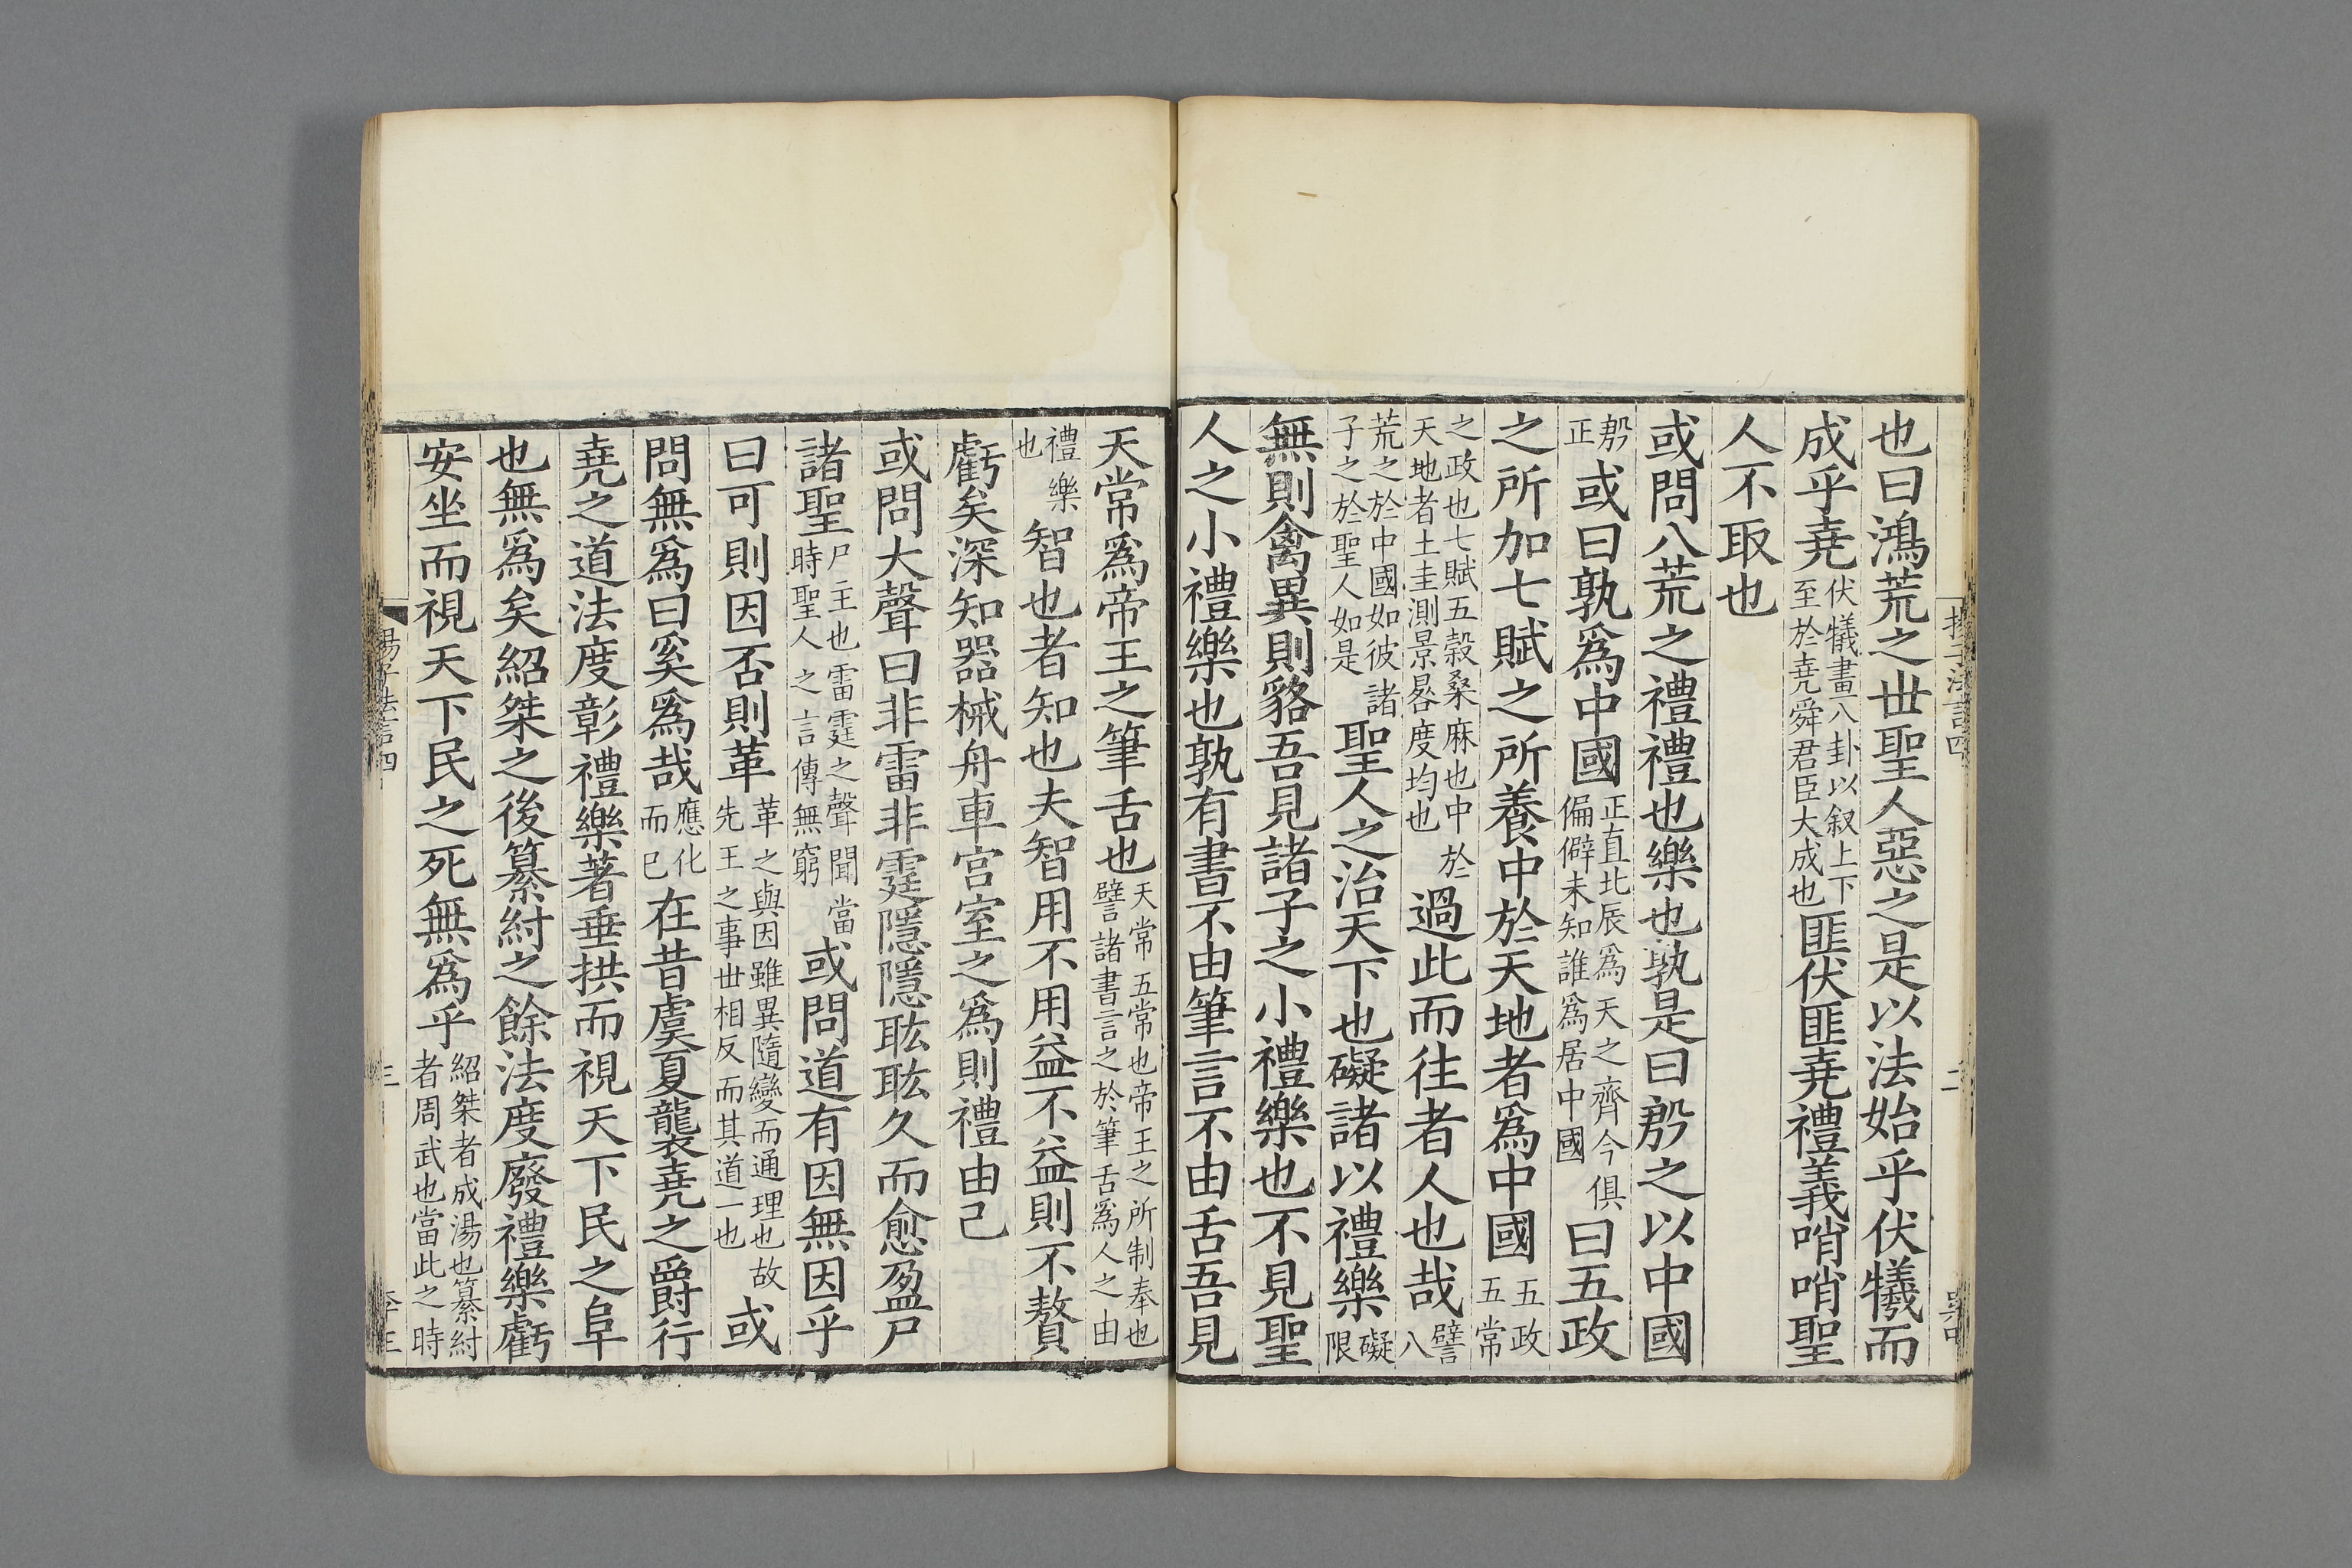 也曰鴻荒之世聖人惡之是以法始乎伏犧而
成乎堯伏犧畫八卦以叙上下至於堯舜君臣大成也匪伏匪堯禮義哨哨聖
人不取也
或問八荒之禮禮也樂也孰是曰殷之以中國
殷正或曰孰爲中國正直北辰爲天之齊今俱偏僻未知誰爲居中國曰五政
之所加七賦之所養中於天地者爲中國五政五常
之政也七賦五穀桑麻也中於天地者土圭測景晷度均也過此而往者人也哉譬八
荒之於中國如彼諸子之於聖人如是聖人之治天下也礙諸以禮樂礙限
無則禽異則貉吾見諸子之小禮樂也不見聖
人之小禮樂也孰有書不由筆言不由舌吾見
天常爲帝王之筆舌也天常五常也帝王之所制奉也譬諸書言之於筆舌爲人之由
禮樂也智也者知也夫智用不用益不益則不贅
虧矣深知器械舟車宫室之爲則禮由己
或問大聲曰非雷非霆隱隱耾耾久而愈盈尸
諸聖尸主也雷霆之聲聞當時聖人之言傳無窮或問道有因無因乎
曰可則因否則革革之與因雖異隨變而通理也故先王之事世相反而其道一也或
問無爲曰奚爲哉應化而已在昔虞夏襲堯之爵行
堯之道法度彰禮樂著垂拱而視天下民之阜
也無爲矣紹桀之後纂紂之餘法度廢禮樂虧
安坐而視天下民之死無爲乎紹桀者成湯也纂紂者周武也當此之時